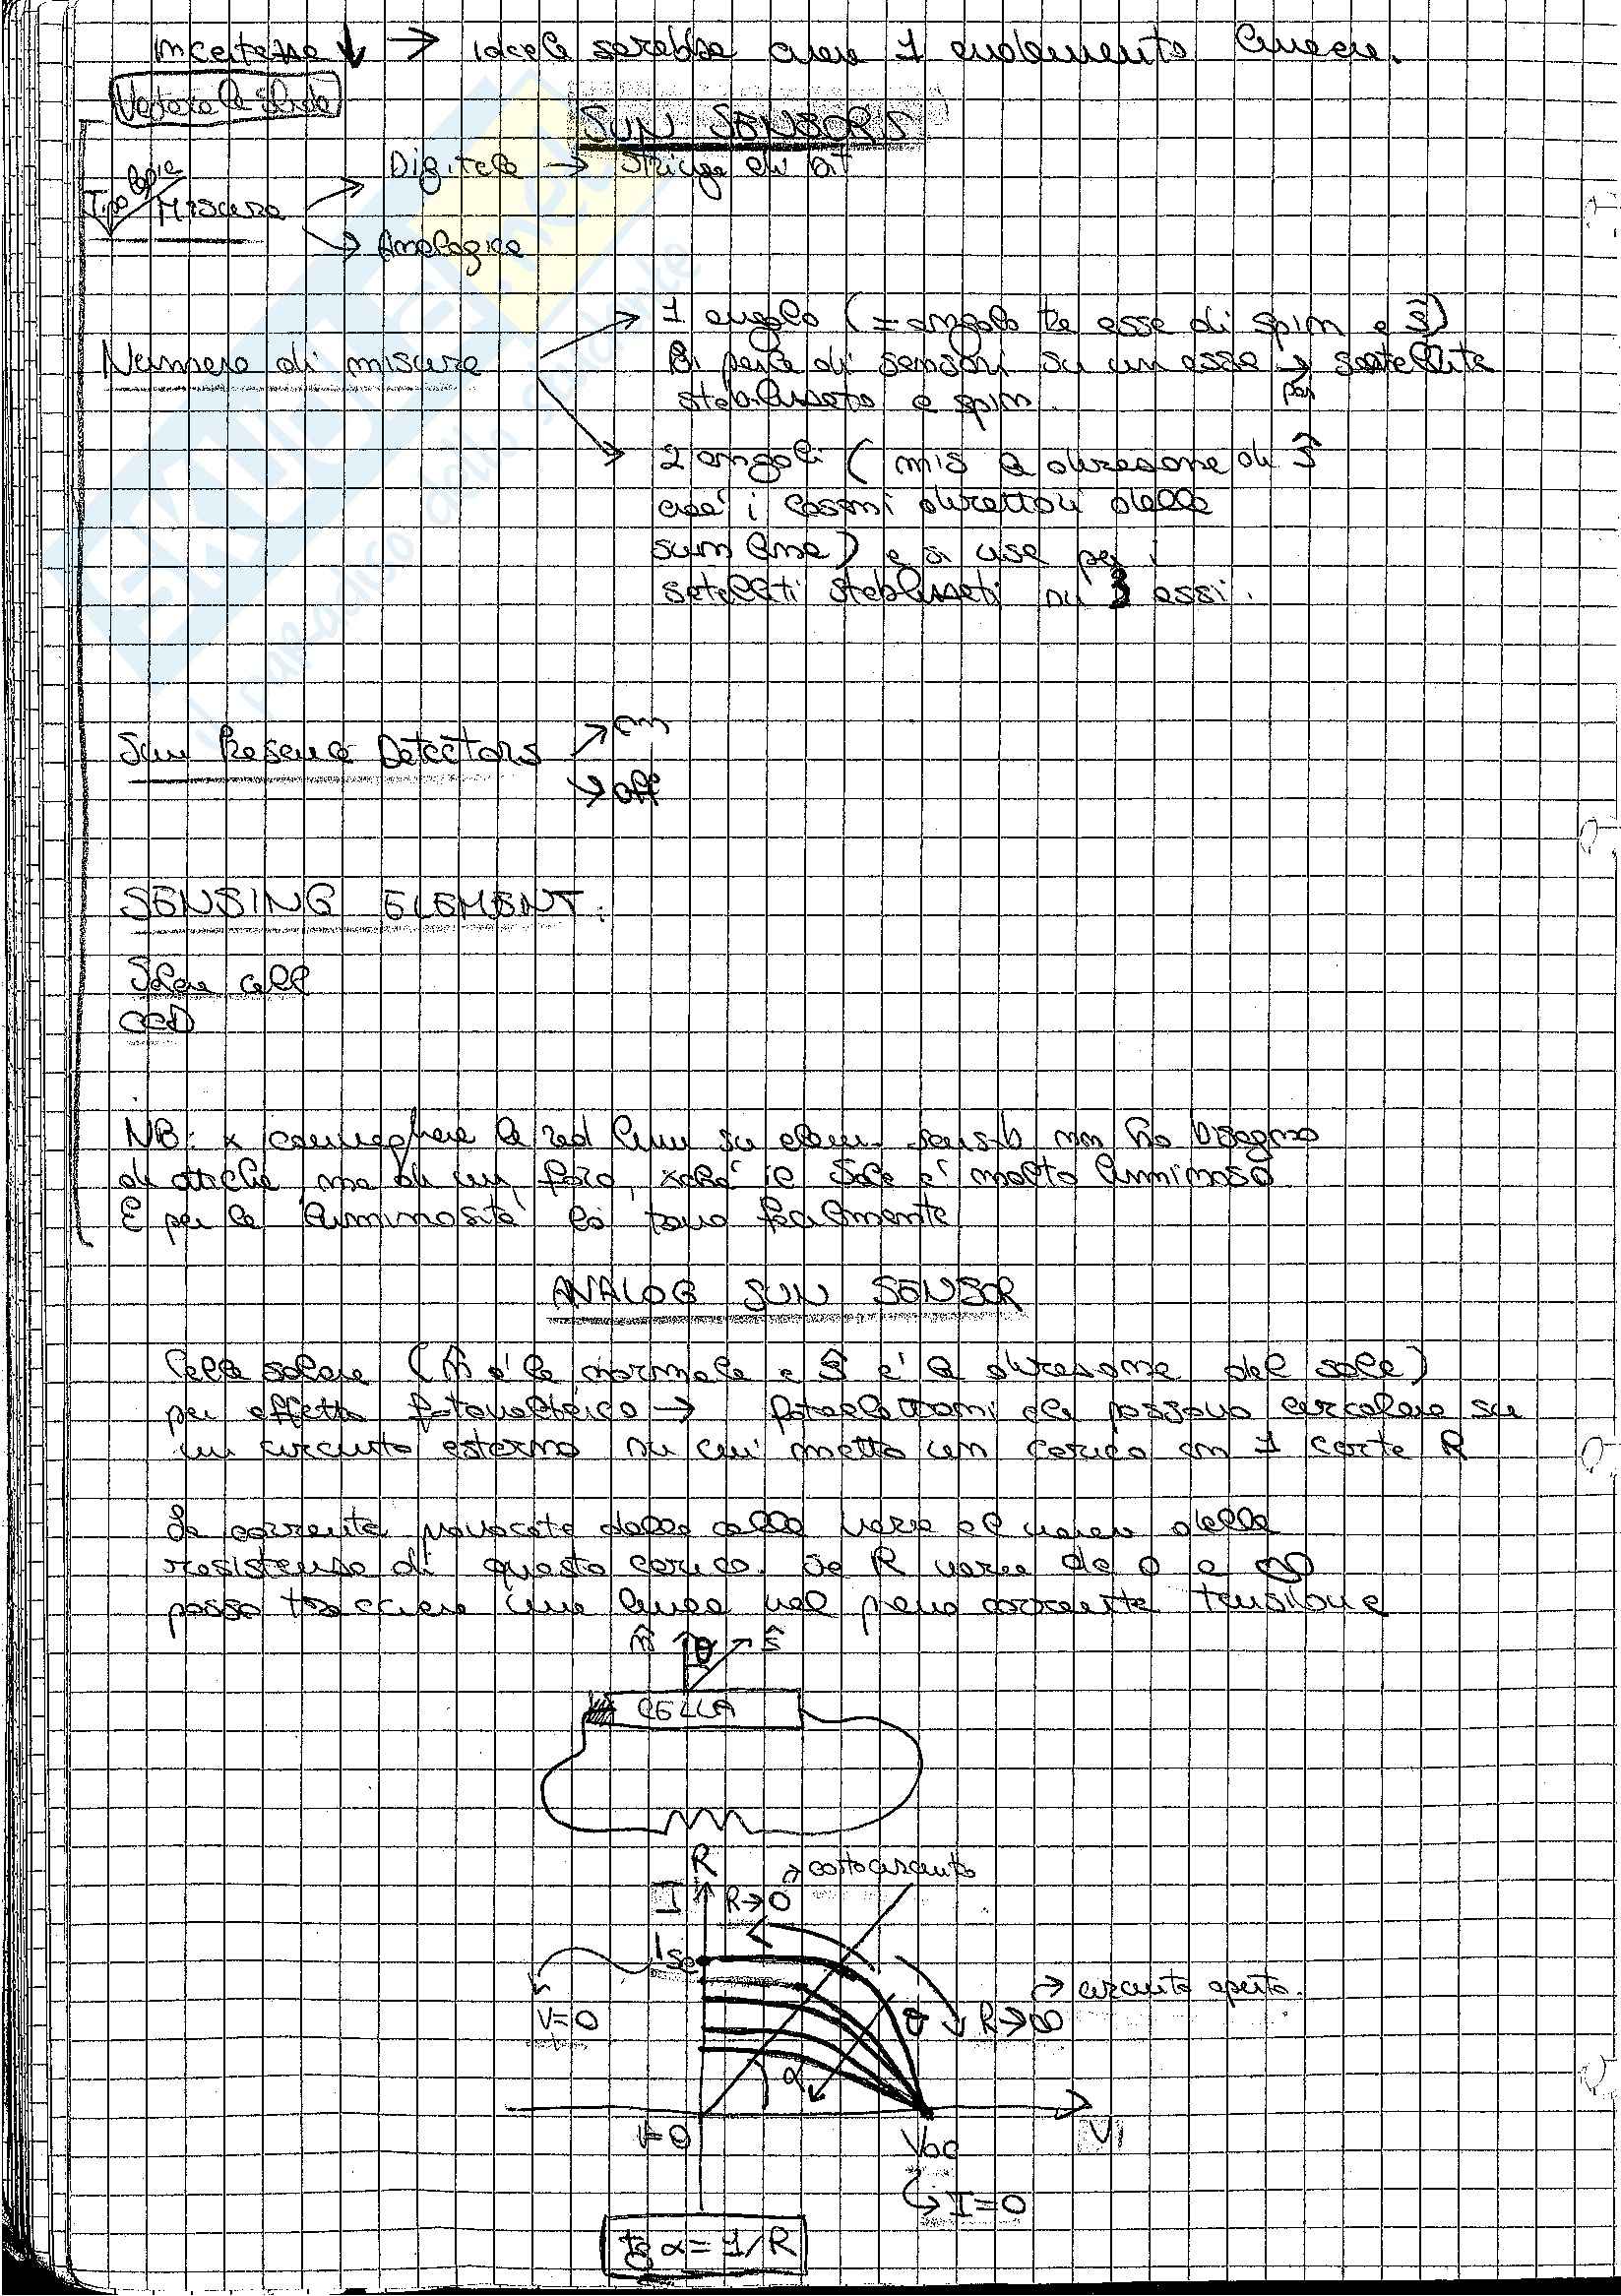 incertezza ↓ → ideale sarebbe avere 1 andamento lineare.
Vedere le slide
SUN SENSORS
Tipologia Misura
Digitale → Stringa di bit
Analogica
Numero di misure
1 angolo (= angolo tra asse di spin e ŝ)
Si parla di sensori su un asse → satellite
per
stabilizzato a spin.
2 angoli (mis la direzione di ŝ
cioè i coseni direttori della
sun line) e si usa per i
satelliti stabilizzati su 3 assi.
Sun Presence Detectors
on
off
SENSING ELEMENT:
Solar cell
CCD
NB: x convogliare la rad lum su elem. sensib non ho bisogno
di ottiche, ma di un foro, xché il Sole è molto luminoso.
E per la luminosità lo trovo facilmente
ANALOG SUN SENSOR
Cella solare (n̂ è la normale e ŝ è la direzione del sole)
per effetto fotovoltaico → fotoelettroni che possono circolare su
un circuito esterno su cui metto un carico con 1 certa R
La corrente provocata dalla cella varia al variare della
resistenza di questo carico. Se R varia da 0 a ∞
posso tracciare una linea nel piano corrente tensione
n̂ θ ŝ
CELLA
R
→ cortocircuito
I R→0
Isc
→ circuito aperto.
V=0
θ R→∞
α
V=0
Voc
V
I=0
tg α = 1/R